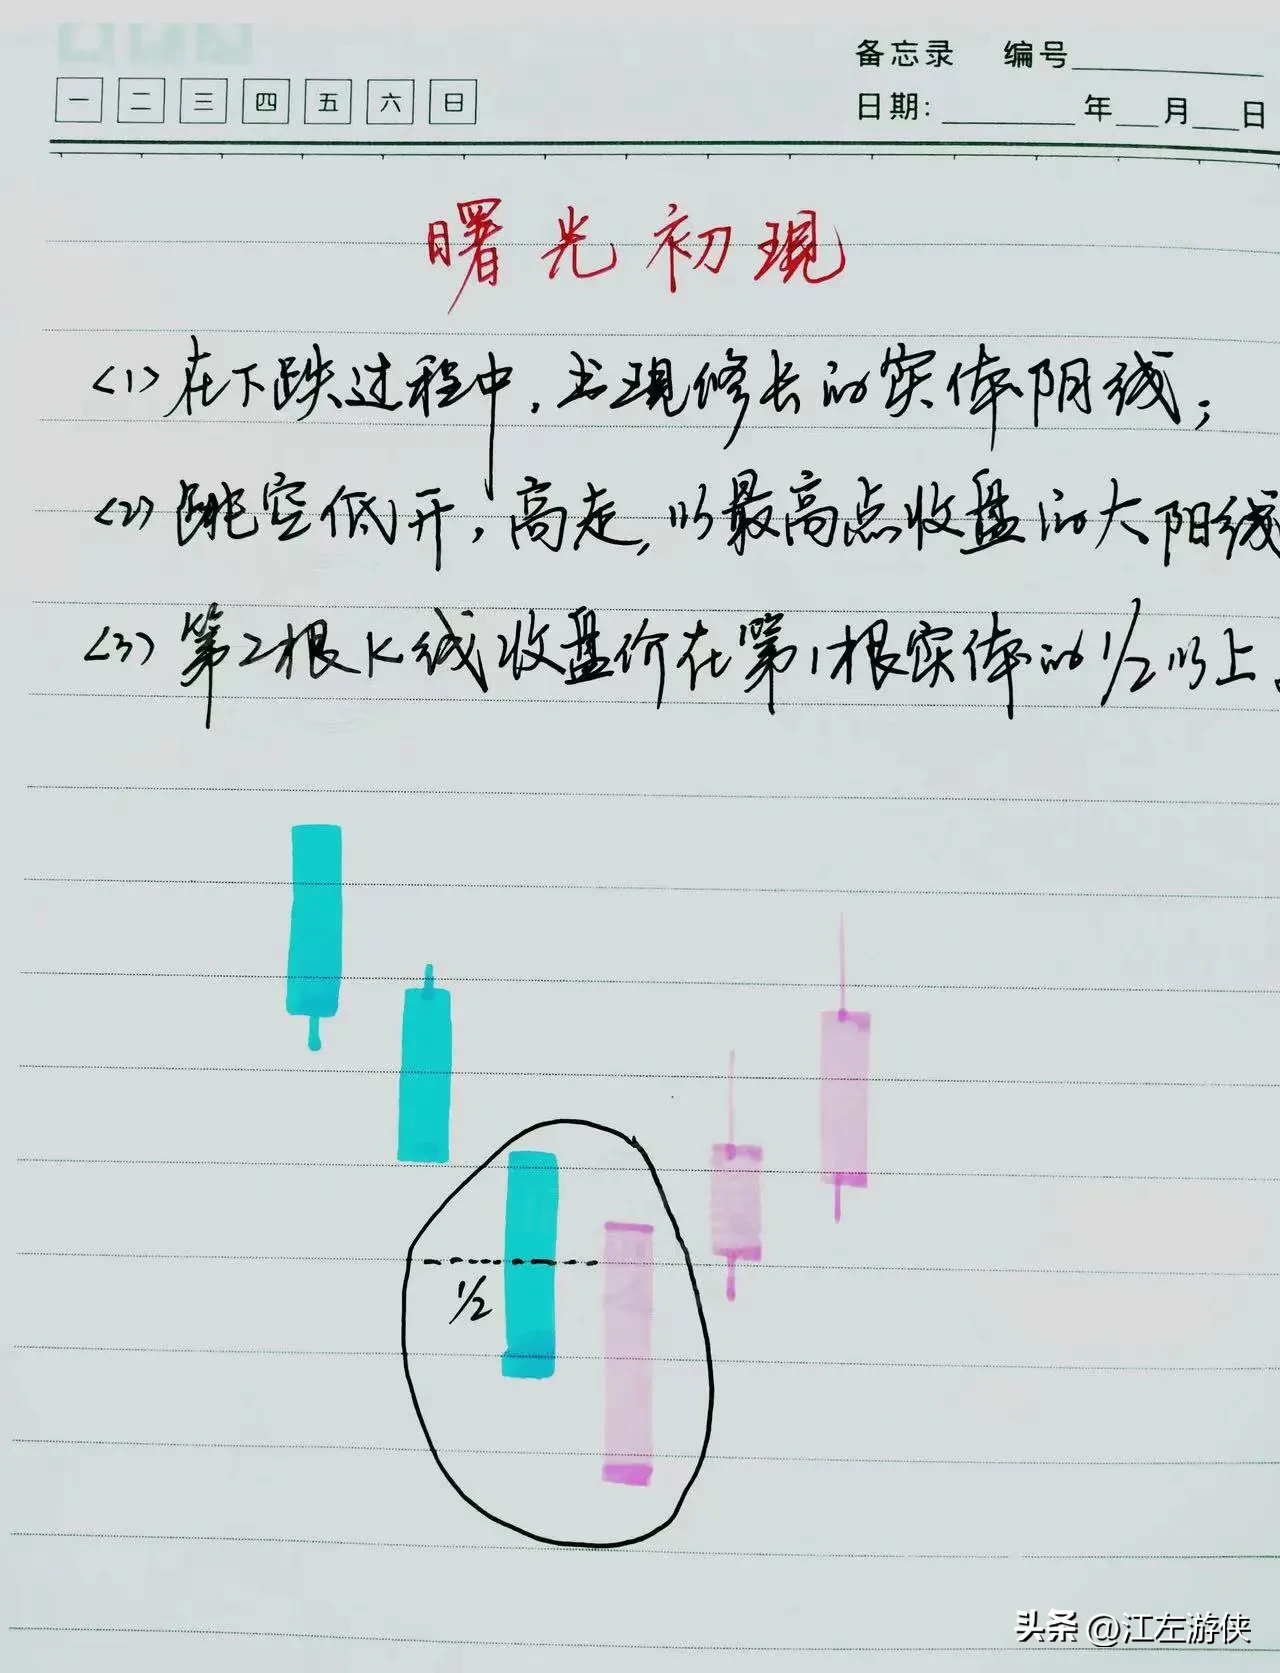 备忘录 编号
一 二 三 四 五 六 日
日期: 年 月 日
曙光初现
(1) 在下跌过程中,出现修长的实体阴线;
(2) 跳空低开,高走,以最高点收盘的大阳线
(3) 第2根K线收盘价在第1根实体的1/2以上.
1/2
头条 @江左游侠